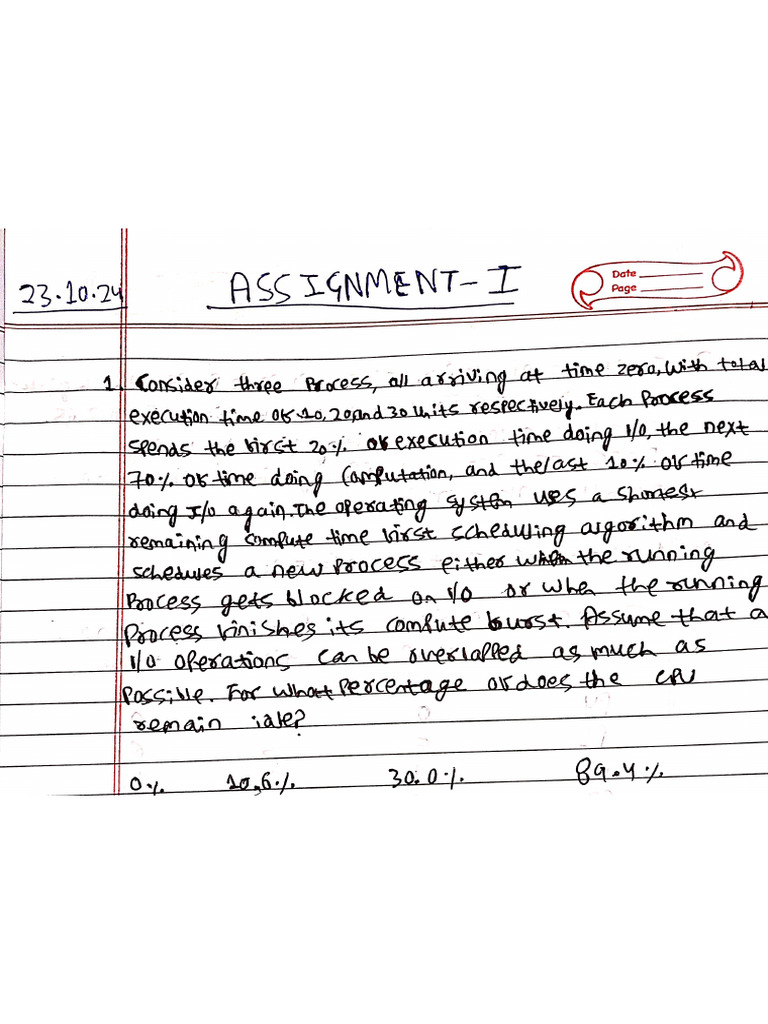 23.10.24
ASSIGNMENT-I
Date
Page
1 Consider three Process, all arriving at time zero, with total
execution time of 10, 20, and 30 units respectively. Each Process
spends the first 20% of execution time doing I/O, the next
70% of time doing Computation, and the last 10% of time
doing I/O again. The operating system uses a shortest
remaining compute time first scheduling algorithm and
schedules a new process either when the running
Process gets blocked on I/O or when the running
Process finishes its compute burst. Assume that a
I/O operations can be overlapped as much as
Possible. For what Percentage of does the CPU
remain idle?
0% 10.6% 30.0% 89.4%